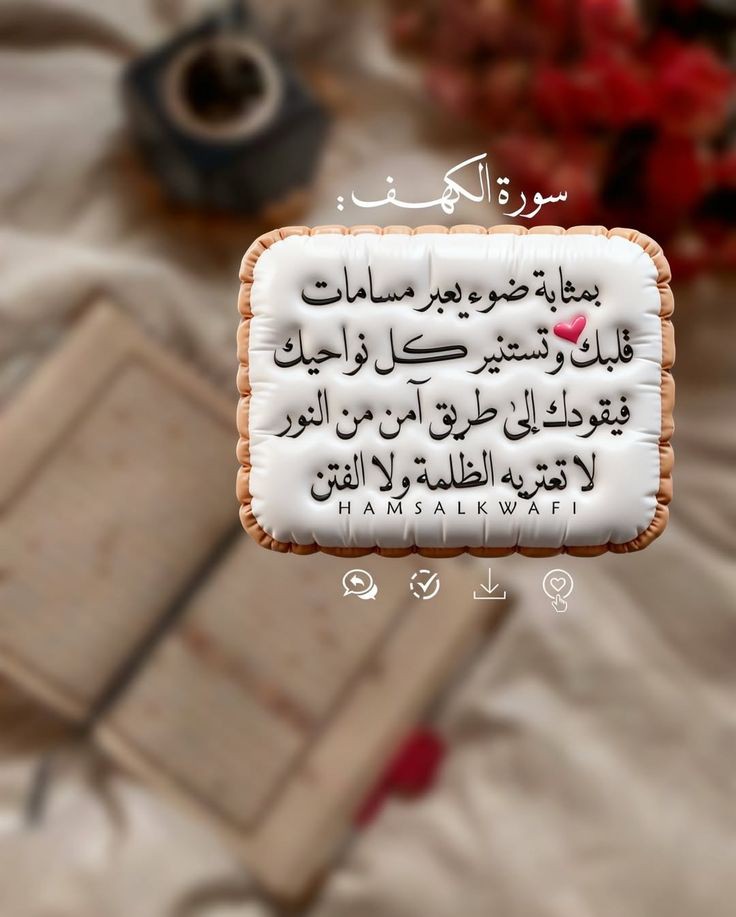 سورة الكهف :
بمثابة ضوء يعبر مسامات
قلبك وتستنير كل نواحيك
فيقودك إلى طريق آمن من النور
لا تعتريه الظلمة ولا الفتن
HAMSALKWAFI